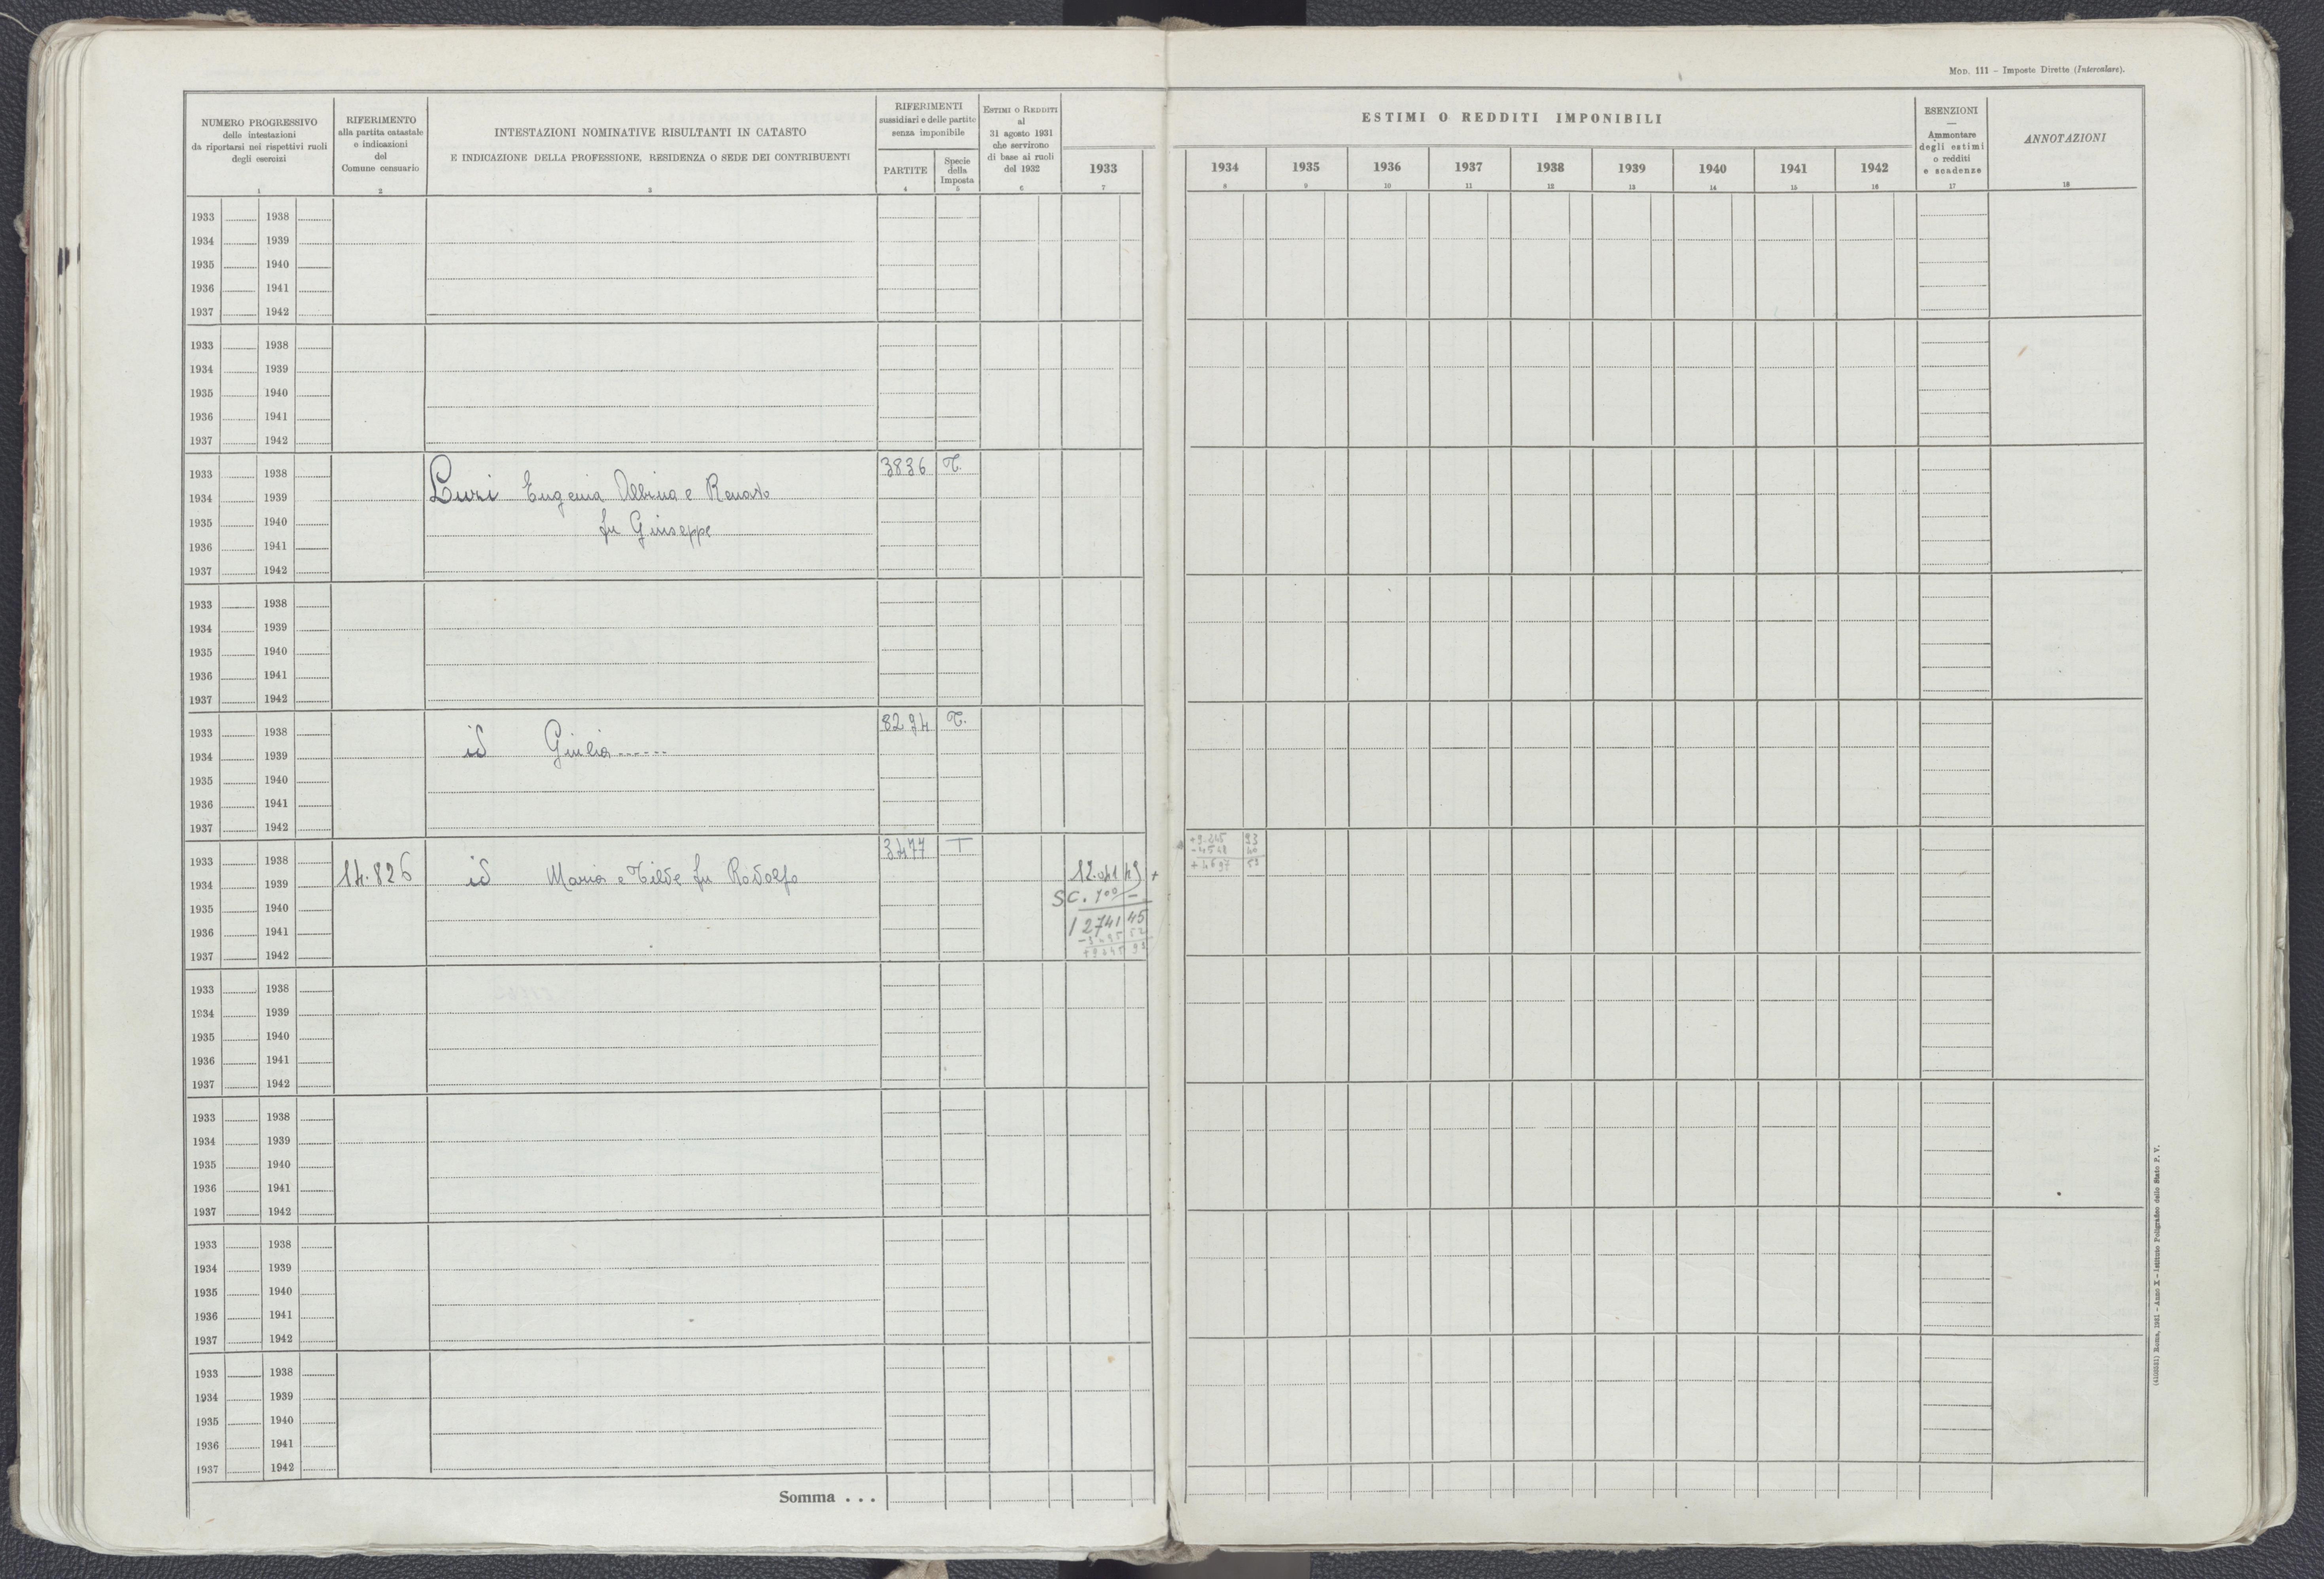 Mod. 111 – Imposte Dirette (Intercalare).
NUMERO PROGRESSIVO
delle intestazioni
da riportarsi nei rispettivi ruoli
degli esercizi
1
RIFERIMENTO
alla partita catastale
e indicazioni
del
Comune censuario
2
INTESTAZIONI NOMINATIVE RISULTANTI IN CATASTO
E INDICAZIONE DELLA PROFESSIONE, RESIDENZA O SEDE DEI CONTRIBUENTI
3
RIFERIMENTI
sussidiari e delle partite
senza imponibile
PARTITE
4
Specie
della
Imposta
5
Estimi o Redditi
al
31 agosto 1931
che servirono
di base ai ruoli
del 1932
6
1933
7
ESTIMI O REDDITI IMPONIBILI
1934 1935 1936 1937 1938 1939 1940 1941 1942
8 9 10 11 12 13 14 15 16
ESENZIONI
—
Ammontare
degli estimi
o redditi
e scadenze
17
ANNOTAZIONI
18
1933 1938
1934 1939
1935 1940
1936 1941
1937 1942
1933 1938
1934 1939
1935 1940
1936 1941
1937 1942
1933 1938 3836 T.
1934 1939 Luzi Eugenia Albina e Renato
1935 1940 fu Giuseppe
1936 1941
1937 1942
1933 1938
1934 1939
1935 1940
1936 1941
1937 1942
1933 1938 T.
1934 1939 id Giulia
1935 1940
1936 1941
1937 1942
1933 1938 3477 T +9.245 93
1934 1939 14.826 id Maria e Tilde fu Rodolfo
1935 1940 SC. 700 –
1936 1941 12741 45
1937 1942 +9245 93
1933 1938
1934 1939
1935 1940
1936 1941
1937 1942
1933 1938
1934 1939
1935 1940
1936 1941
1937 1942
1933 1938
1934 1939
1935 1940
1936 1941
1937 1942
1933 1938
1934 1939
1935 1940
1936 1941
1937 1942
Somma . . .
Roma, 1931 – Anno X – Istituto Poligrafico dello Stato P. V.